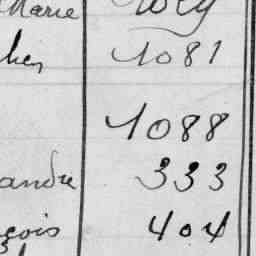 Marie
1081
1088
andre 333
çois 404